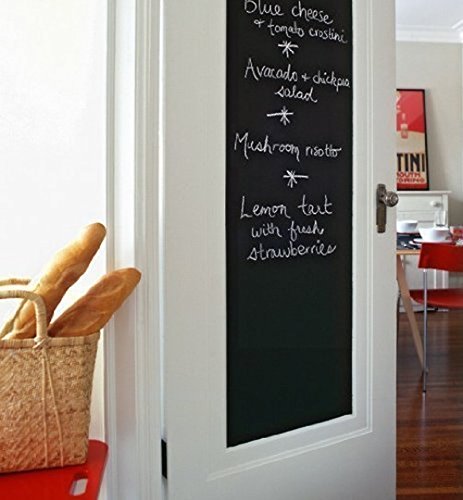 Blue cheese
& tomato crostini
Avacado & chickpea
salad
Mushroom risotto
Lemon tart
with fresh
strawberries
TINI